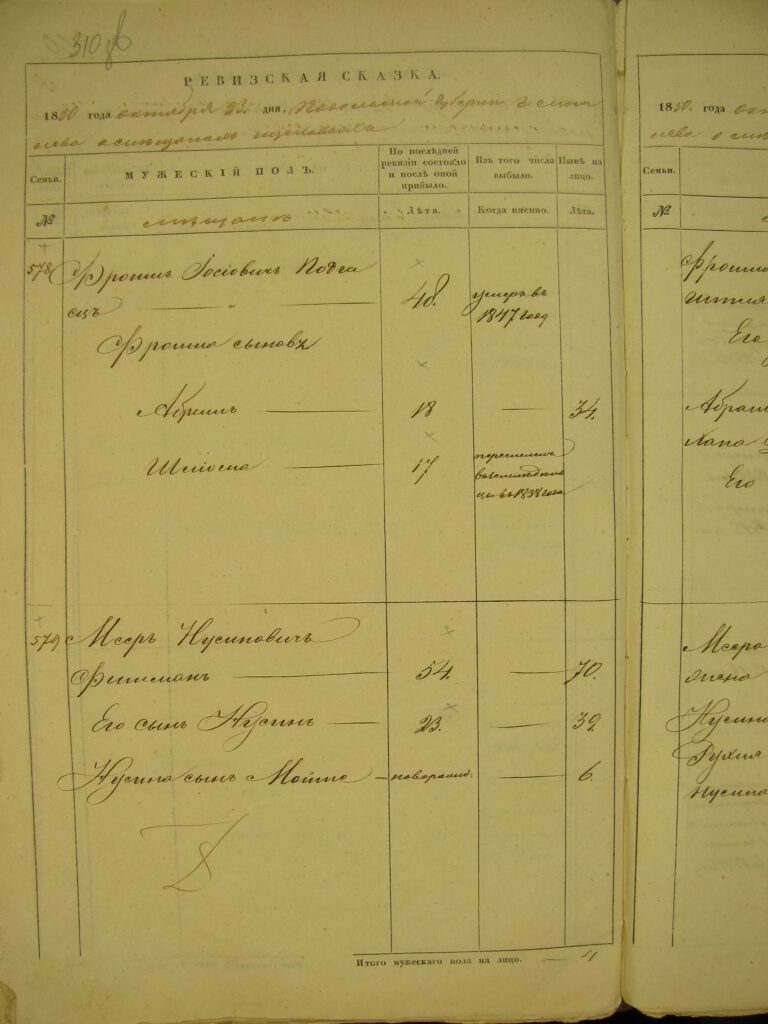 310 об
РЕВИЗСКАЯ СКАЗКА.
1850 года октября 23. дня, Подольской губерніи г.
о мѣщанахъ
Семьи. МУЖЕСКІЙ ПОЛЪ. По послѣдней ревизіи состояло и послѣ оной прибыло. Изъ того числа выбыло. Нынѣ на лицо.
№ мѣщане Лѣта. Когда именно. Лѣта.
578 Фроимъ Іосіовичъ Подга
ецъ 48. умеръ въ 1847 году
Фроима сыновья
Абрамъ 18 34.
17 въ 1838 года
579 Мееръ Нусиновичъ
Фишманъ 54. 70.
Его сынъ Нусинъ 23. 39.
Нусина сынъ Мошко новорожд: 6.
Итого мужескаго пола на лицо. 4
1850. года
Фроима
Его
Абрам
Хапа
Его
Меера
Нусина
Рухля
Нусина